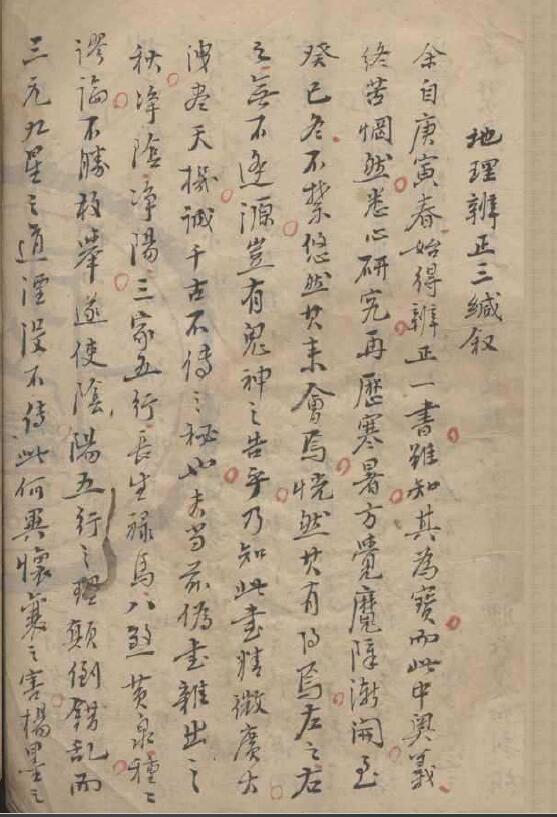 地理辨正三緘叙
余自庚寅春始得辨正一書雖知其為寶而此中奧義
終苦惘然悉心研究再歷寒暑方覺魔障漸開至
癸巳冬不禁悠然其來會焉恍然其有得焉左之右
之無不逢源豈有鬼神之告乎乃知此書精微廣大
洩盡天機誠千古不傳之秘也夫當茲偽書雜出之
秋淨陰淨陽三家五行長生祿馬八煞黃泉種〻
謬論不勝枚舉遂使陰陽五行之理顛倒錯亂而
三元九星之道湮沒不傳此何異懷襄之害楊墨之